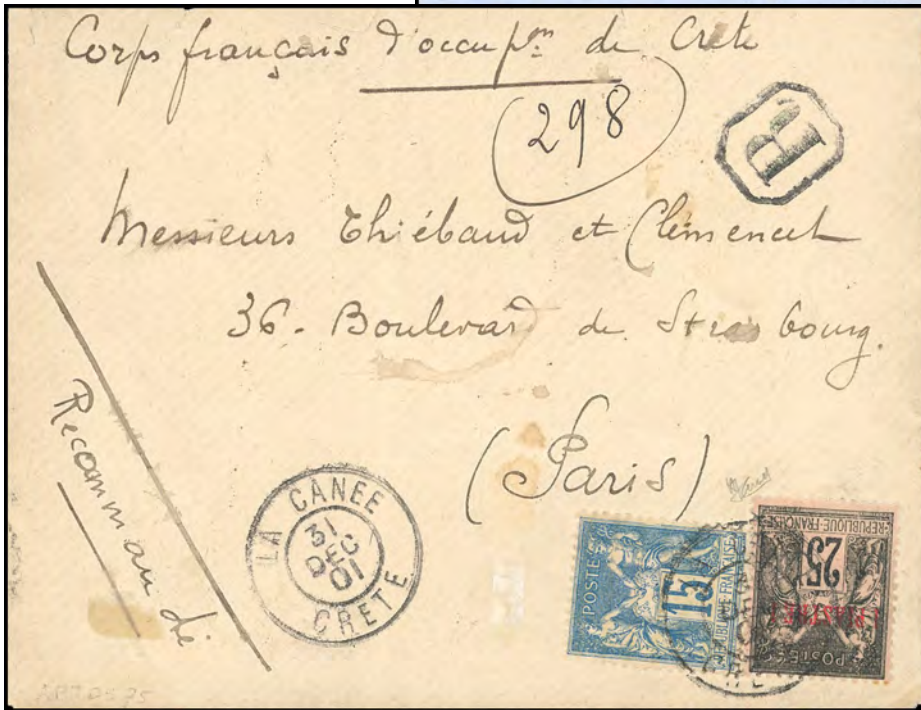 Corps français d'occupon de Crète
298
R
Messieurs Thiébaud et Clémencet
36 - Boulevard de Strasbourg.
(Paris)
Recommandé
LA CANEE
31
DEC
01
CRETE
POSTES
15
REPUBLIQUE FRANÇAISE
REPUBLIQUE FRANÇAISE
25
1 PIASTRE 1
POSTES